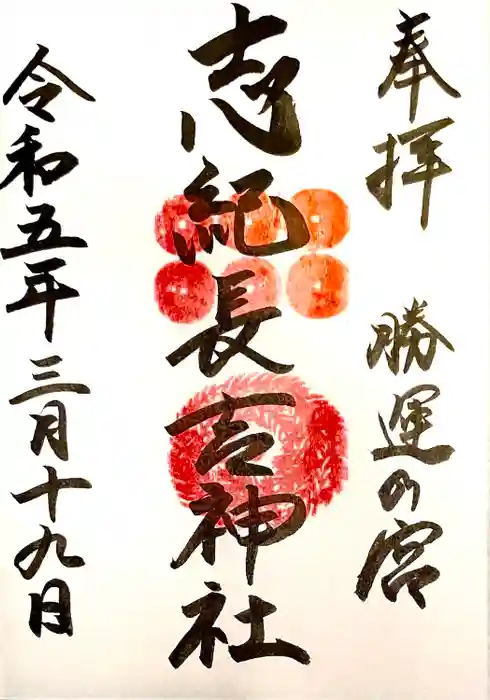 奉拝 勝運の宮
志紀長吉神社
令和五年三月十九日